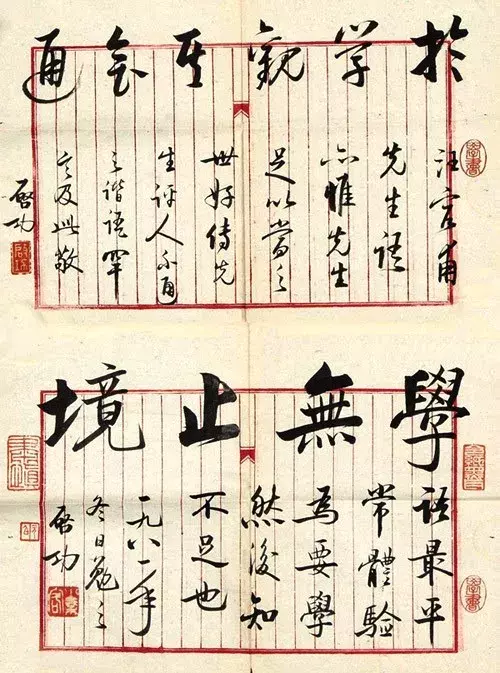 於学觀其会通
汪容甫
先生語
亦惟先生
足以當之
世好傳先
生評人不通
之諧語罕
言及此敬
啓功
學無止境
語最平
常體驗
為要學
然後知
不足也
一九八一年
冬日勉之
啓功